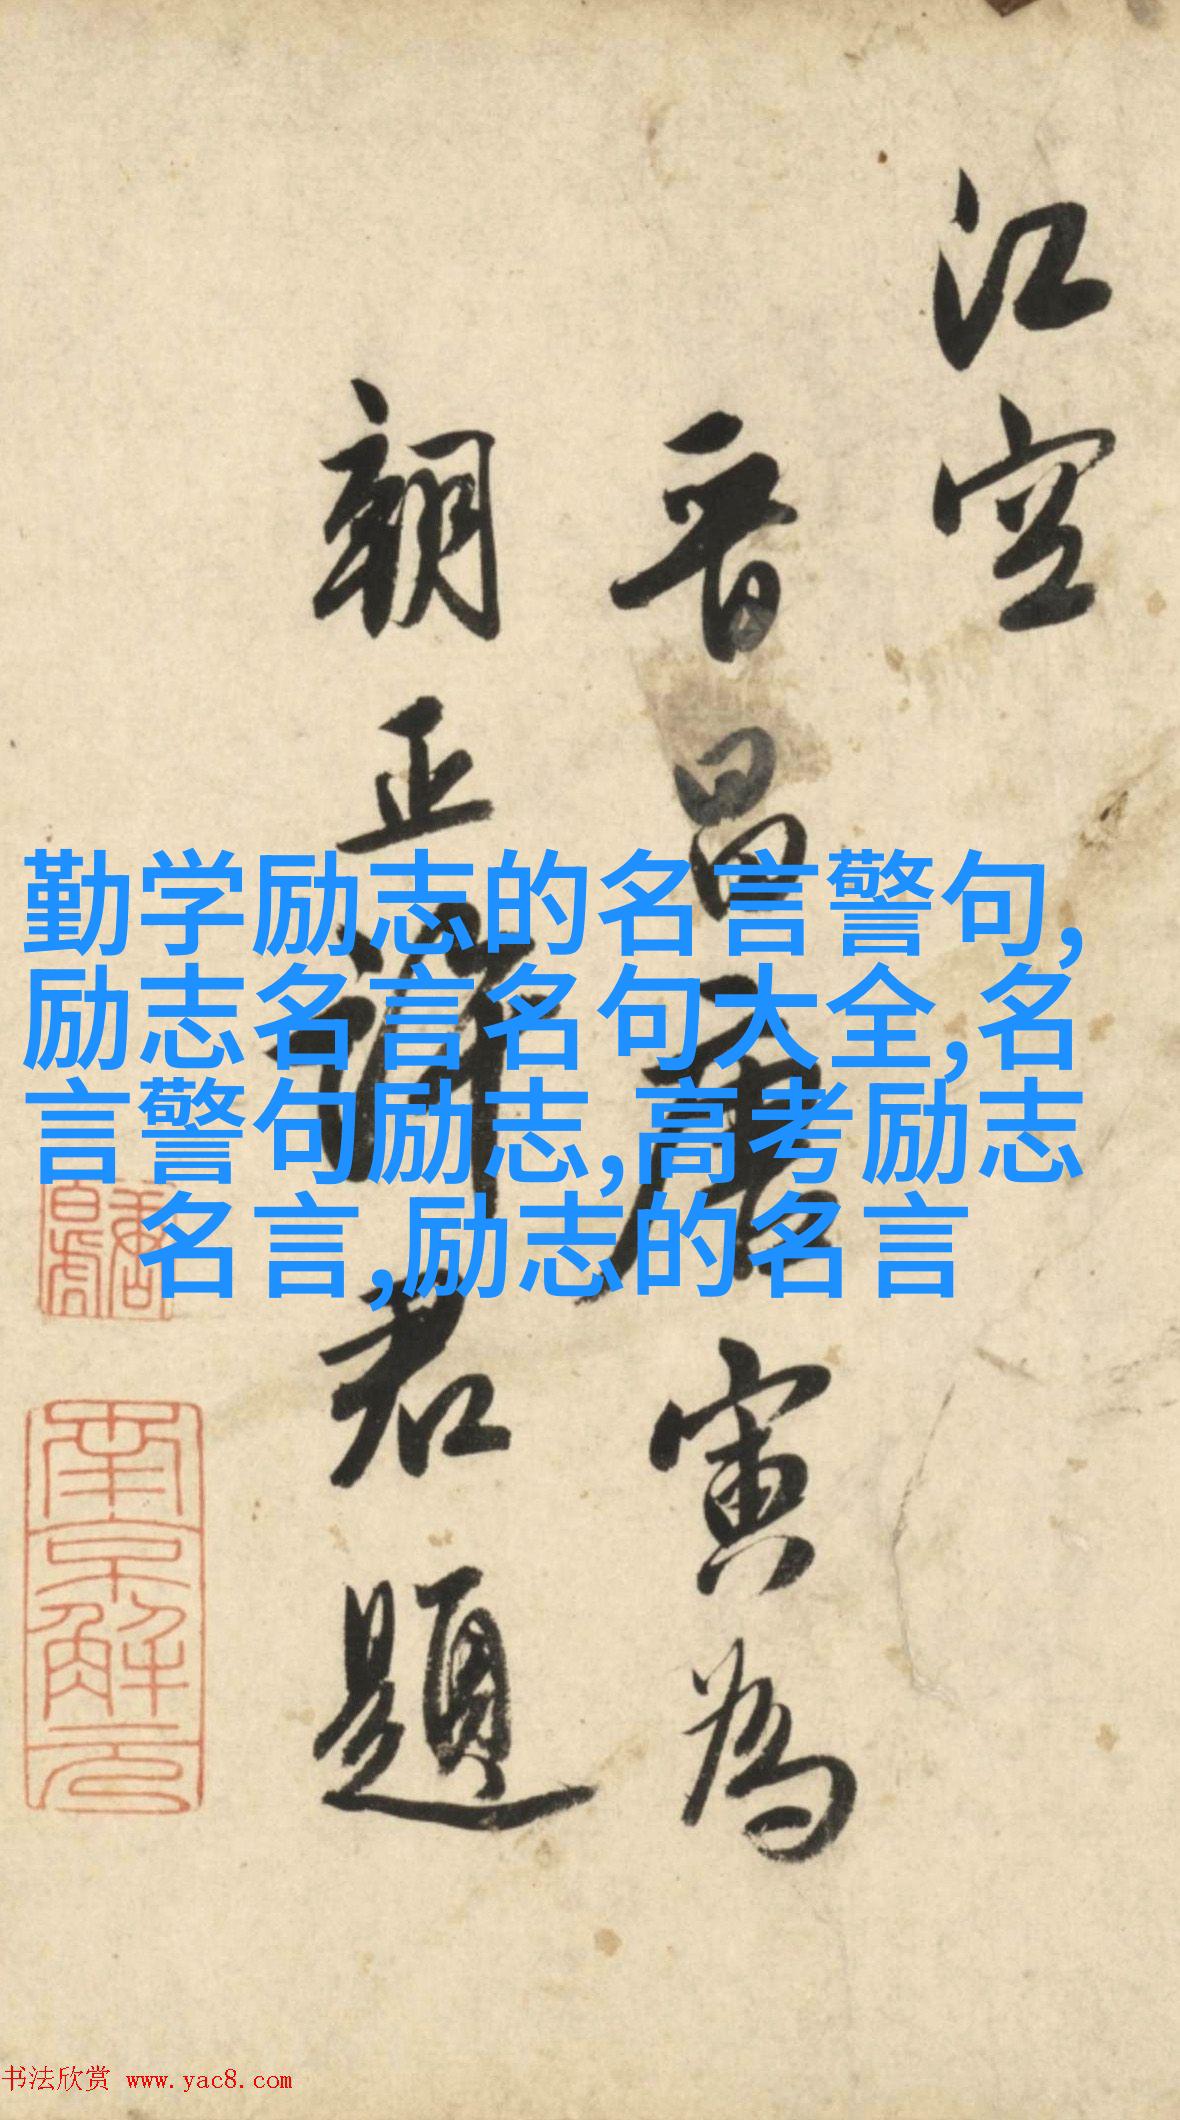 江空
晋昌唐寅为
朝正
君题
勤学励志的名言警句,
励志名言名句大全,名
言警句励志,高考励志
名言,励志的名言
南京解元
书法欣赏 www.yac8.com